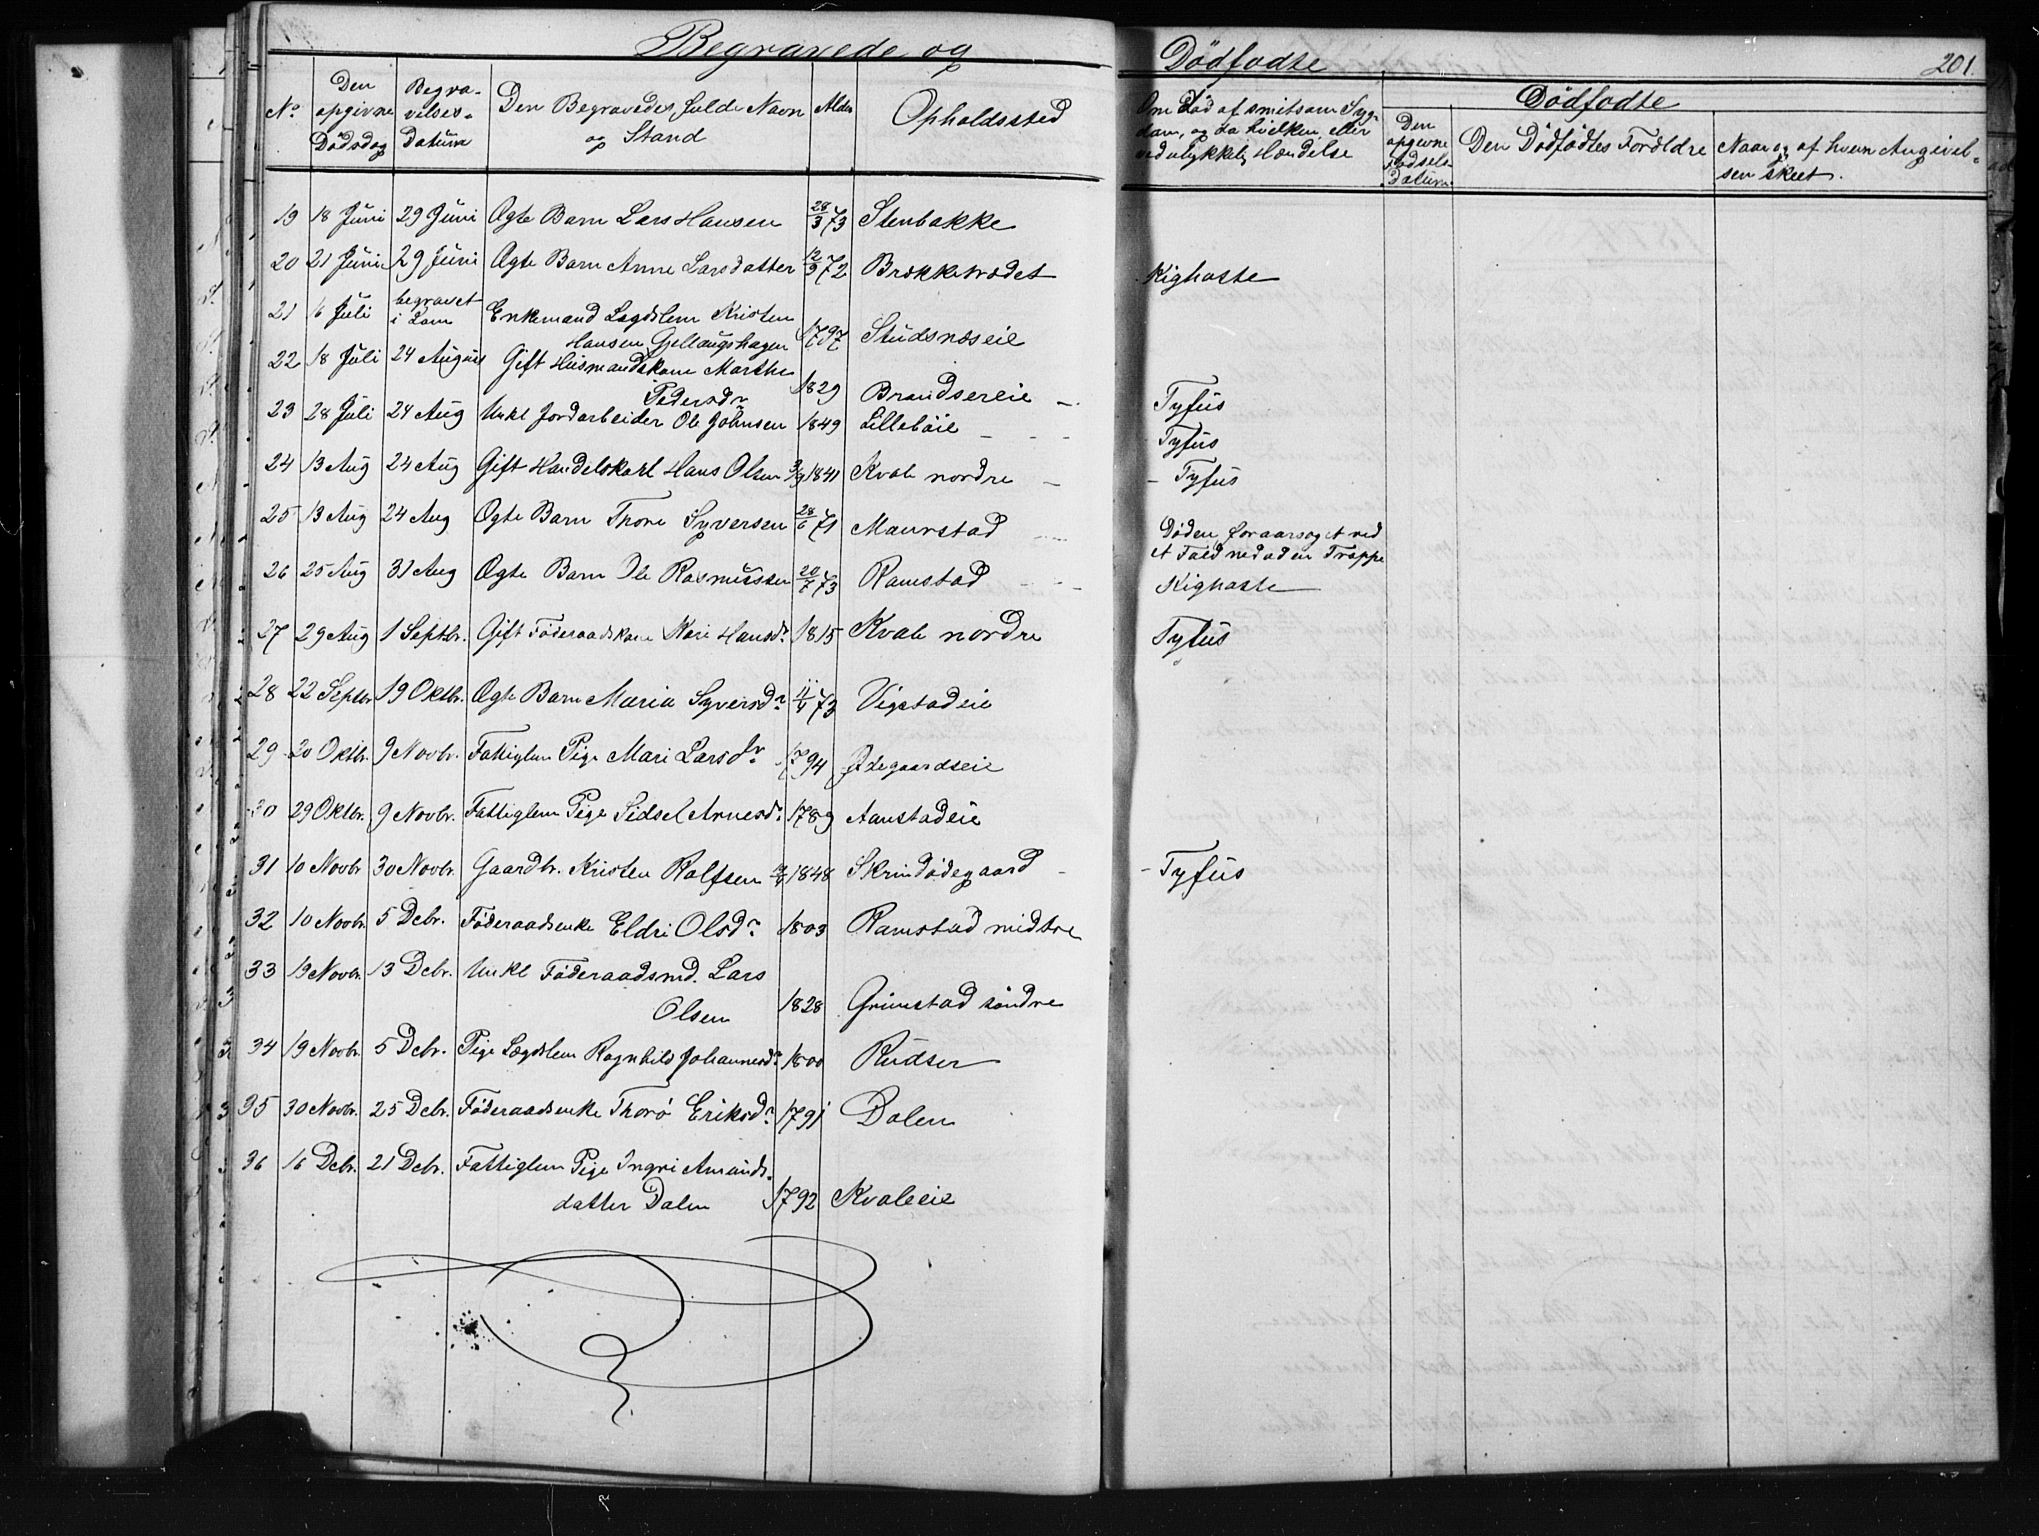 Begravede og
Dödfödte
201.
No
Den opgivne Dödsdag
Begra-velses-Datum
Den Begravedes fulde Navn og Stand
Alder
Opholdssted
Om död af smitsom Syg-dom, og da hvilken, eller ved ulykkelig Hændelse
Dödfodte
Den opgivne Fødsels-Datum.
Den Dödfødtes Forældre
Naar og af hvem Angivel-sen skeet.
19 18 Juni 29 Juni Ægte Barn Lars Hansen 28/3 73 Stenbakke
20 21 Juni 29 Juni Ægte Barn Anne Larsdatter 12/9 72 Brækketrædet Kighoste
21 6 Juli begravet i Lom Enkemand Lægdslem Kristen
Hansen Gjellaugshagen 1797 Studsnæseie
22 18 Juli 24 August Gift Husmandskone Marthe
Pedersdr 1829 Brandsereie Tyfus
23 28 Juli 24 Aug Unkl Jordarbeider Ole Johnsen 1849 Lilleböie Tyfus
24 13 Aug 24 Aug Gift Handelskarl Hans Olsen 3/9 1841 Kvale nordre Tyfus
25 13 Aug 24 Aug Ægte Barn Thore Syversen 28/6 71 Maurstad Døden foraarsaget ved
et Fald ned ad en Trappe
26 25 Aug 31 Aug Ægte Barn Ole Rasmussen 20/7 73 Ramstad Kighoste
27 29 Aug 1 Septbr. Gift Föderaadskone Mari Hansdr 1815 Kvale nordre Tyfus
28 22 Septbr 19 Oktbr. Ægte Barn Maria Syversdr 4/4 73 Vigstadeie
29 20 Oktbr. 9 Novbr. Fattiglem Pige Mari Larsdr 1794 Ødegaardseie
30 29 Oktbr. 9 Novbr. Fattiglem Pige Sidsel Arnesdr 1789 Aanstadeie
31 10 Novbr 30 Novbr. Gaardbr. Kristen Rolfsen 1848 Skrindödegaard Tyfus
32 10 Novbr. 5 Dcbr. Föderaadsenke Eldri Olsdr 1803 Ramstad midtre
33 19 Novbr. 13 Dcbr. Unkl Föderaadsmd. Lars
Olsen 1828 Grimstad söndre
34 19 Novbr. 5 Dcbr. Pige Lægdslem Ragnhild Johannesdr 1800 Rudser
35 30 Novbr. 25 Dcbr. Föderaadsenke Thorø Eriksdr 1791 Dalen
36 16 Dcbr. 21 Dcbr. Fattiglem Pige Ingri Amunds-
datter Dalen 1792 Kvaleeie